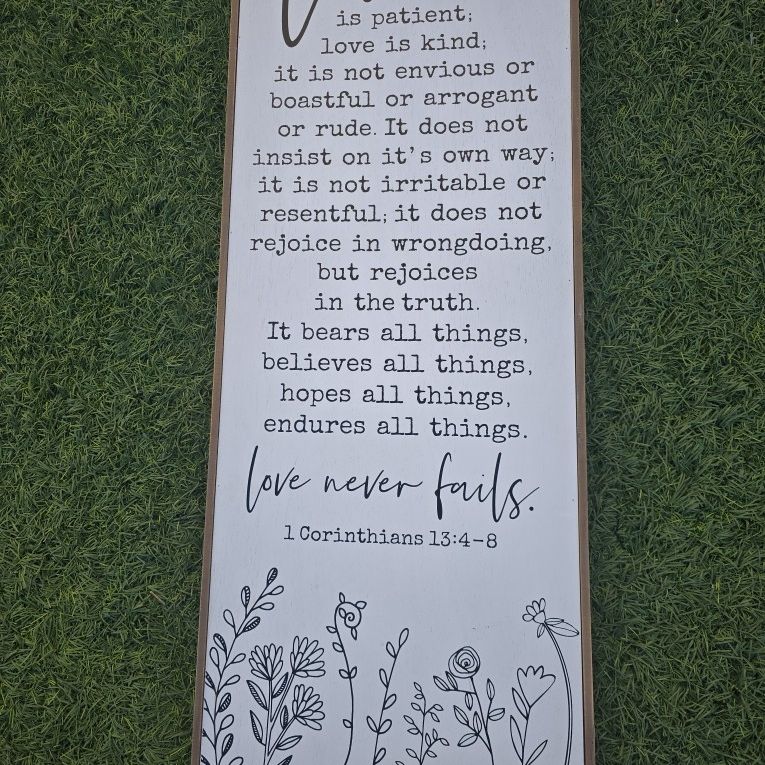 is patient;
love is kind;
it is not envious or
boastful or arrogant
or rude. It does not
insist on it's own way;
it is not irritable or
resentful; it does not
rejoice in wrongdoing,
but rejoices
in the truth.
It bears all things,
believes all things,
hopes all things,
endures all things.
love never fails.
1 Corinthians 13:4-8